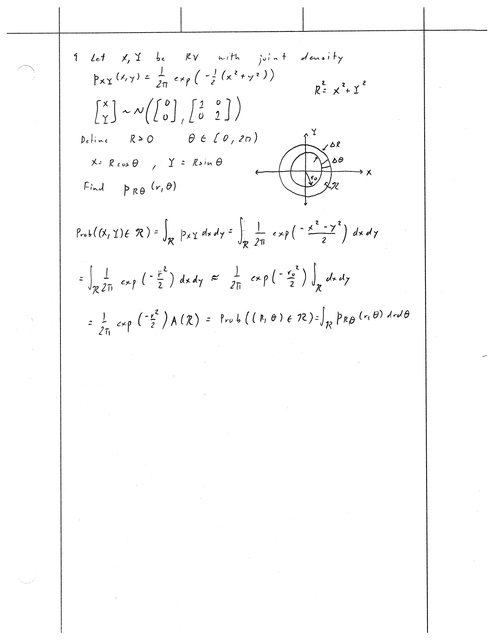 9 Let X, Y be RV with joint density
p_XY(x,y) = 1/2π exp(-1/2(x²+y²))
R² = X²+Y²
[X Y] ~ N([0 0], [2 0 0 2])
Define R≥0 θ ∈ [0, 2π)
X = R cos θ , Y = R sin θ
Find p_Rθ(r,θ)
Y
ΔR
Δθ
r
r₀
X
R
Prob((X,Y) ∈ R) = ∫_R p_XY dxdy = ∫_R 1/2π exp(-x²-y²/2) dxdy
= ∫_R 1/2π exp(-r²/2) dxdy ≈ 1/2π exp(-r₀²/2) ∫_R dxdy
= 1/2π exp(-r²/2) A(R) = Prob((R,θ) ∈ R) = ∫_R p_Rθ(r,θ) drdθ